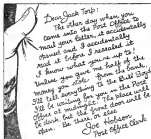 Dear Jack Torb:
The other day when you
came into the Post Office to
mail your letter, it accidentally
opened and I accidentally
read it before I resealed it
I know what you're up to
unless you give me half of the
money you stole from the bank,
I'll tell everything to the Ball Boys
I'll be waiting for you in the Post
Office at but the front door will be
open. Be there or else.
Joe Hobson
Post Office Clerk